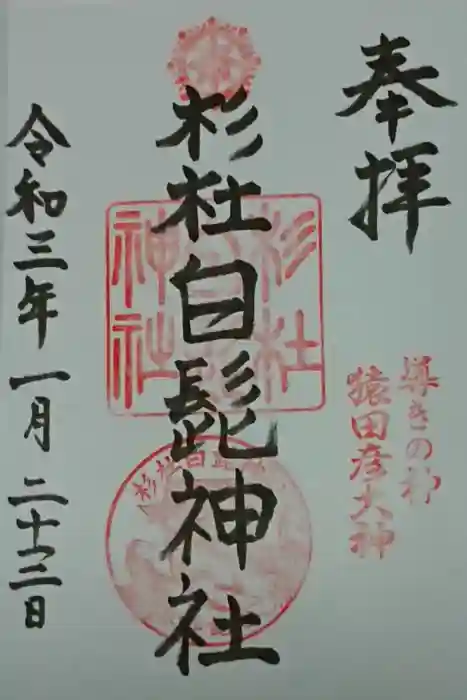 奉拝
導きの神
猿田彦大神
杉社白髭神社
杉社
神社
杉社白髭
令和三年一月二十三日